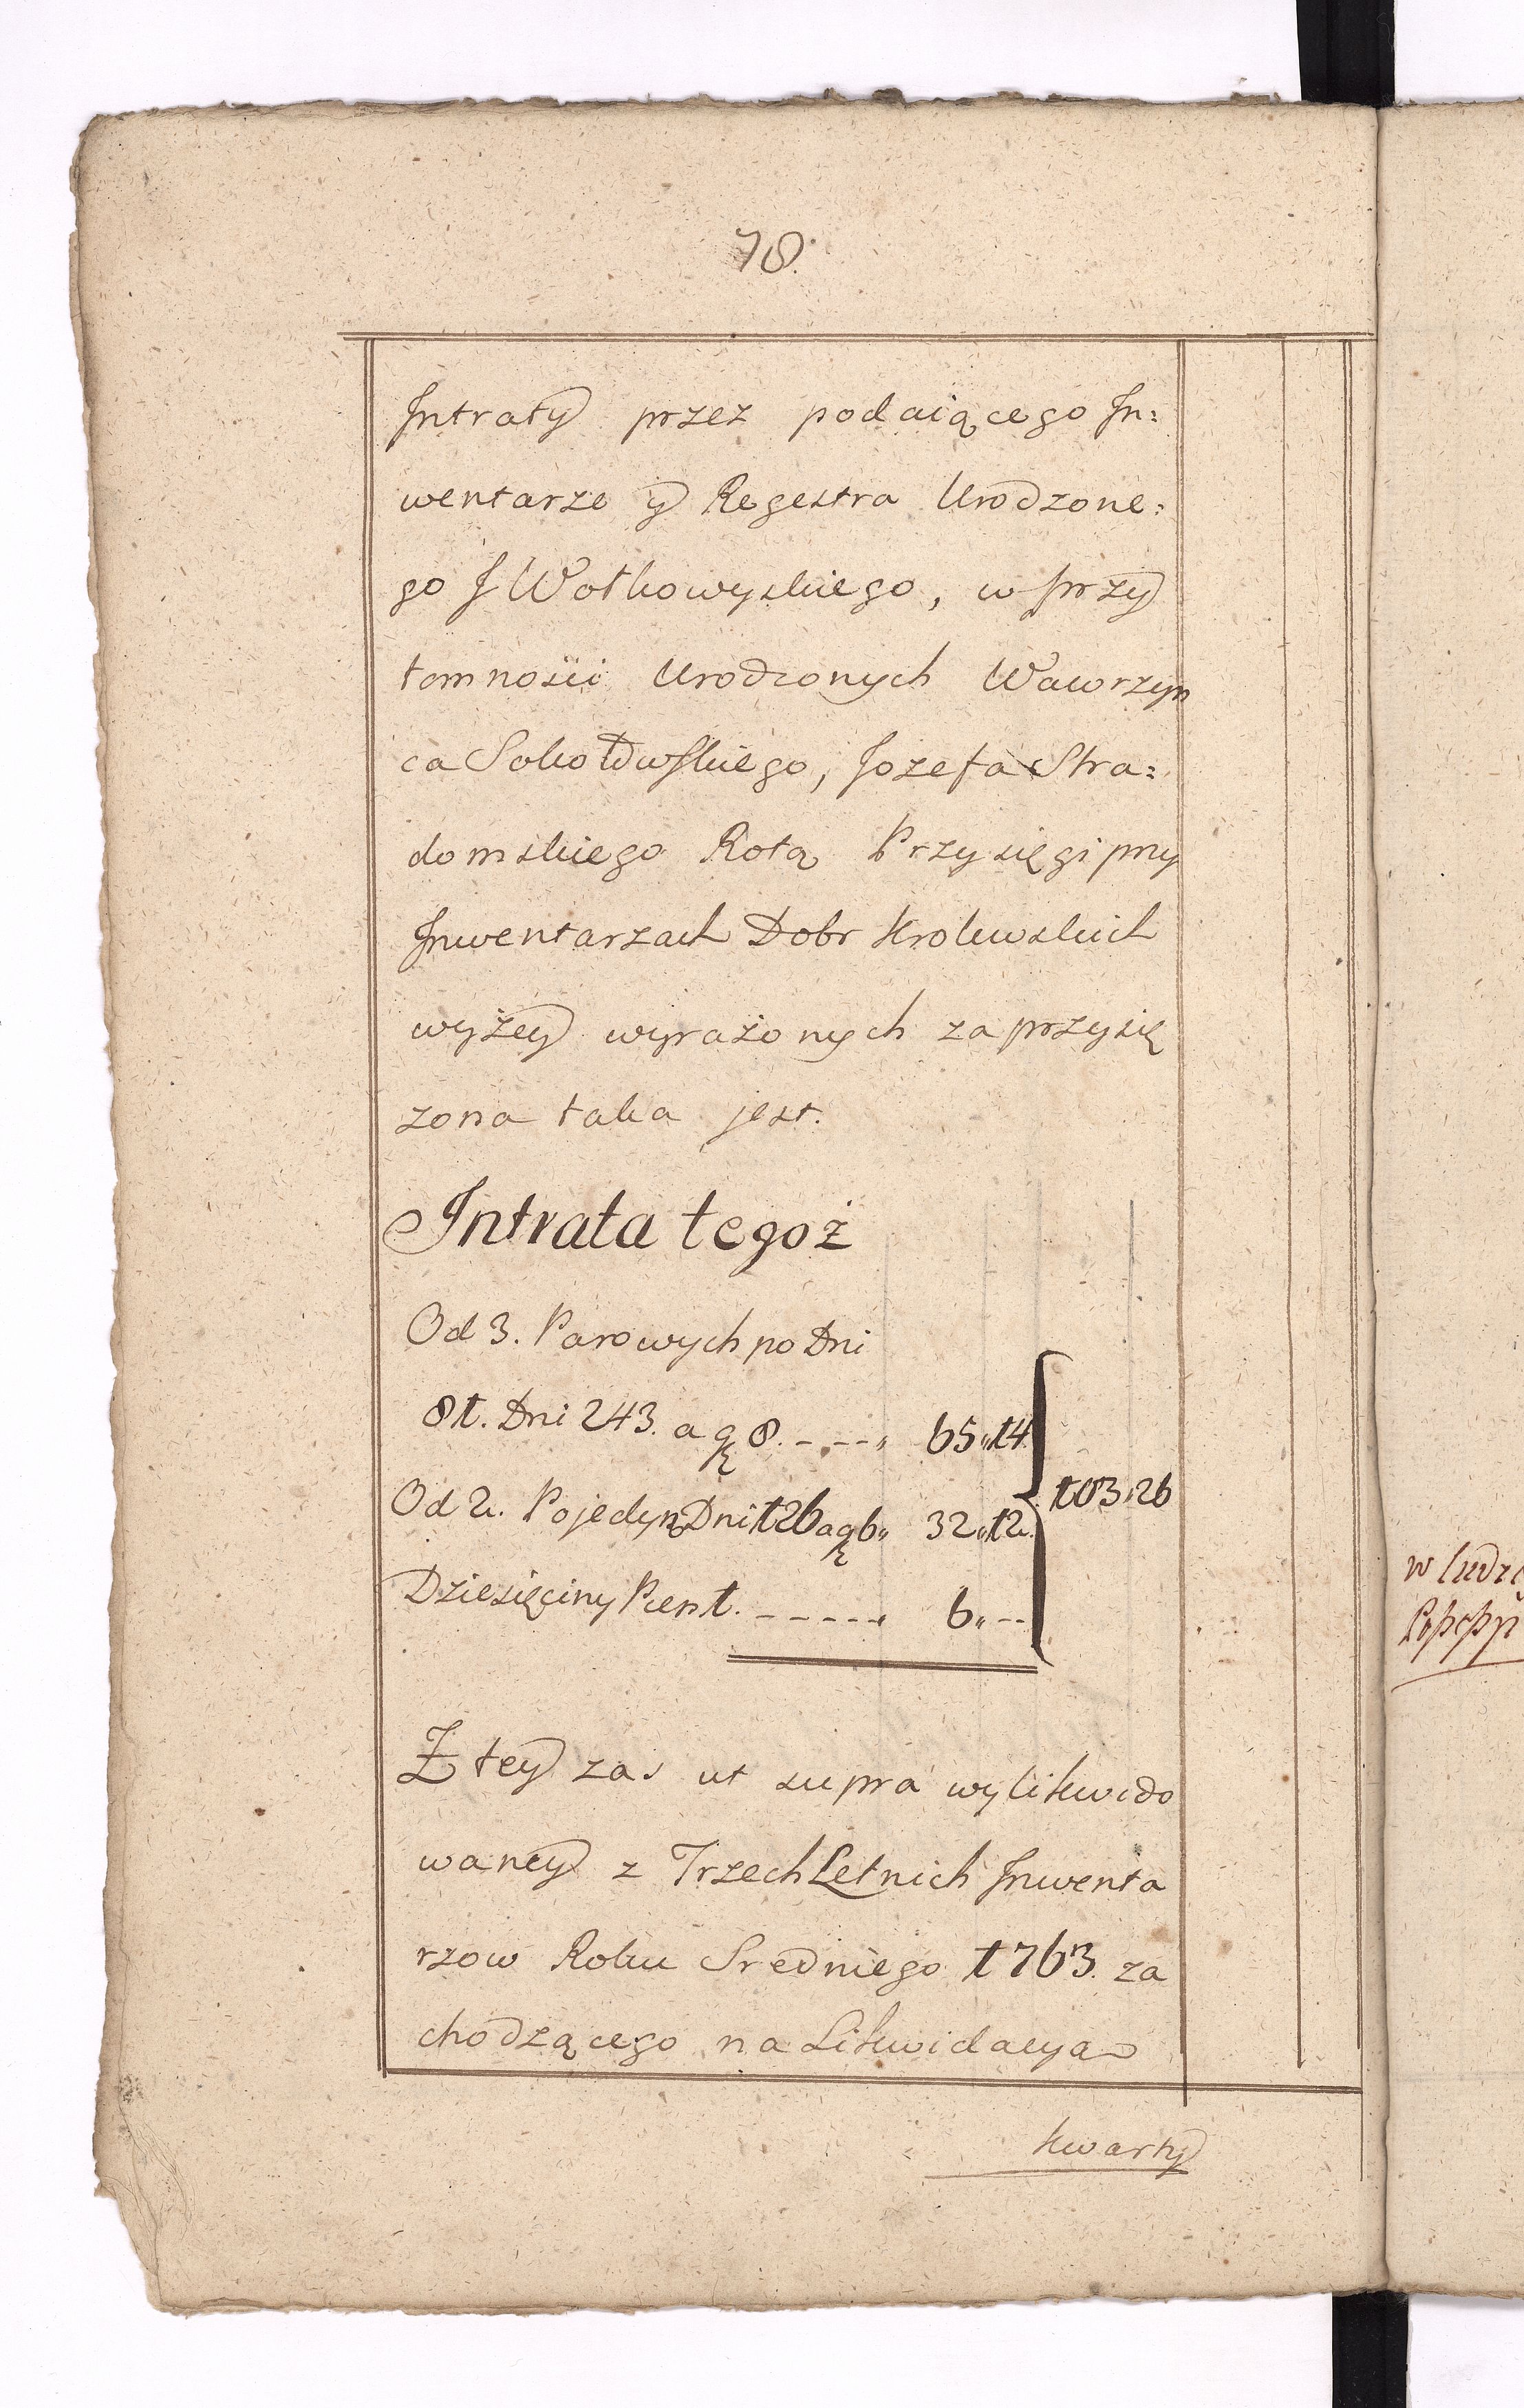 78.
Intraty przez podaiącego In:
wentarze y Regestra Urodzone:
go J Wołkowyskiego, w przy
tomności Urodzonych Wawrzyn
ca Sokołowskiego, Jozefa Stra:
domskiego Rotą Przysięgi przy
Inwentarzach Dobr Krolewskich
wyżey wyrażonych zaprzysię
żona taka jest.
Intrata tegoż
Od 3. Parowych po Dni
81. Dni 243. a gę 8. - - - - „ 65 „ 14.
Od 2. Pojedyn. Dni 126 a gę 6 „ 32 „ 12.
103 „ 26
Dziesięciny Pien 1. - - - - - „ 6 „ - -
Z tey zas ut supra wylikwido
waney z Trzech Letnich Inwenta
rzow Roku Sredniego 1763. za
chodzącego na Likwidacya
kwarty
w ludzi